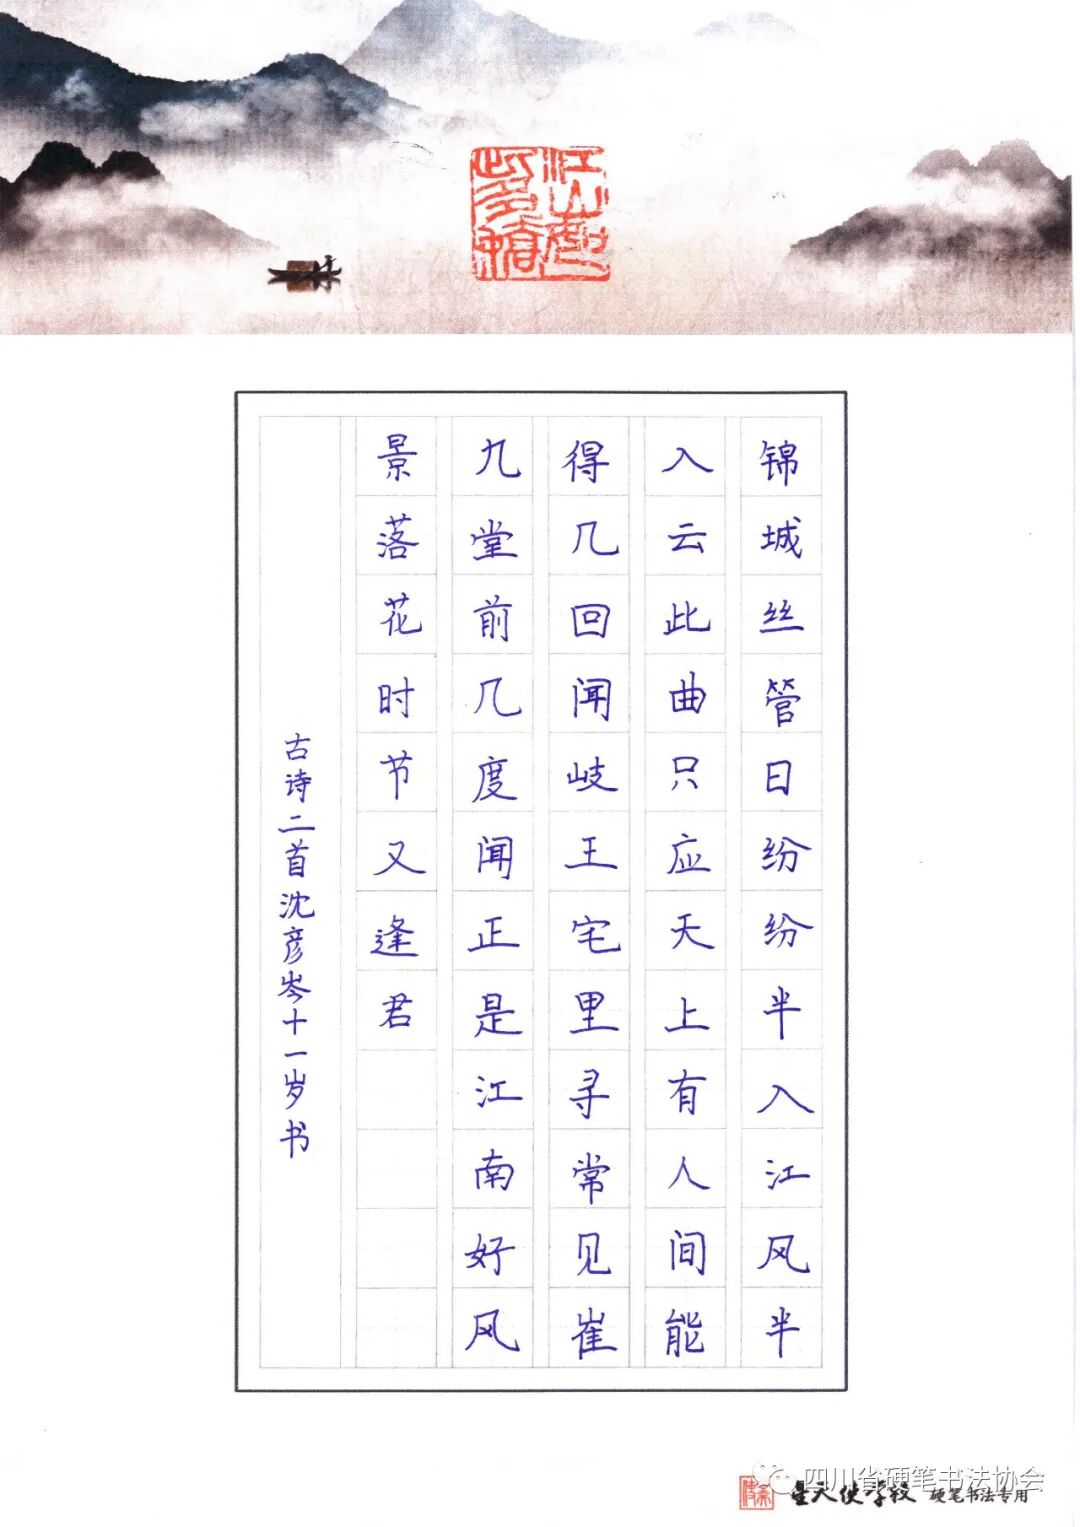 江山如此多娇
锦城丝管日纷纷半入江风半
入云此曲只应天上有人间能
得几回闻岐王宅里寻常见崔
九堂前几度闻正是江南好风
景落花时节又逢君
古诗二首沈彦岑十一岁书
四川省硬笔书法协会
星天使学校 硬笔书法专用